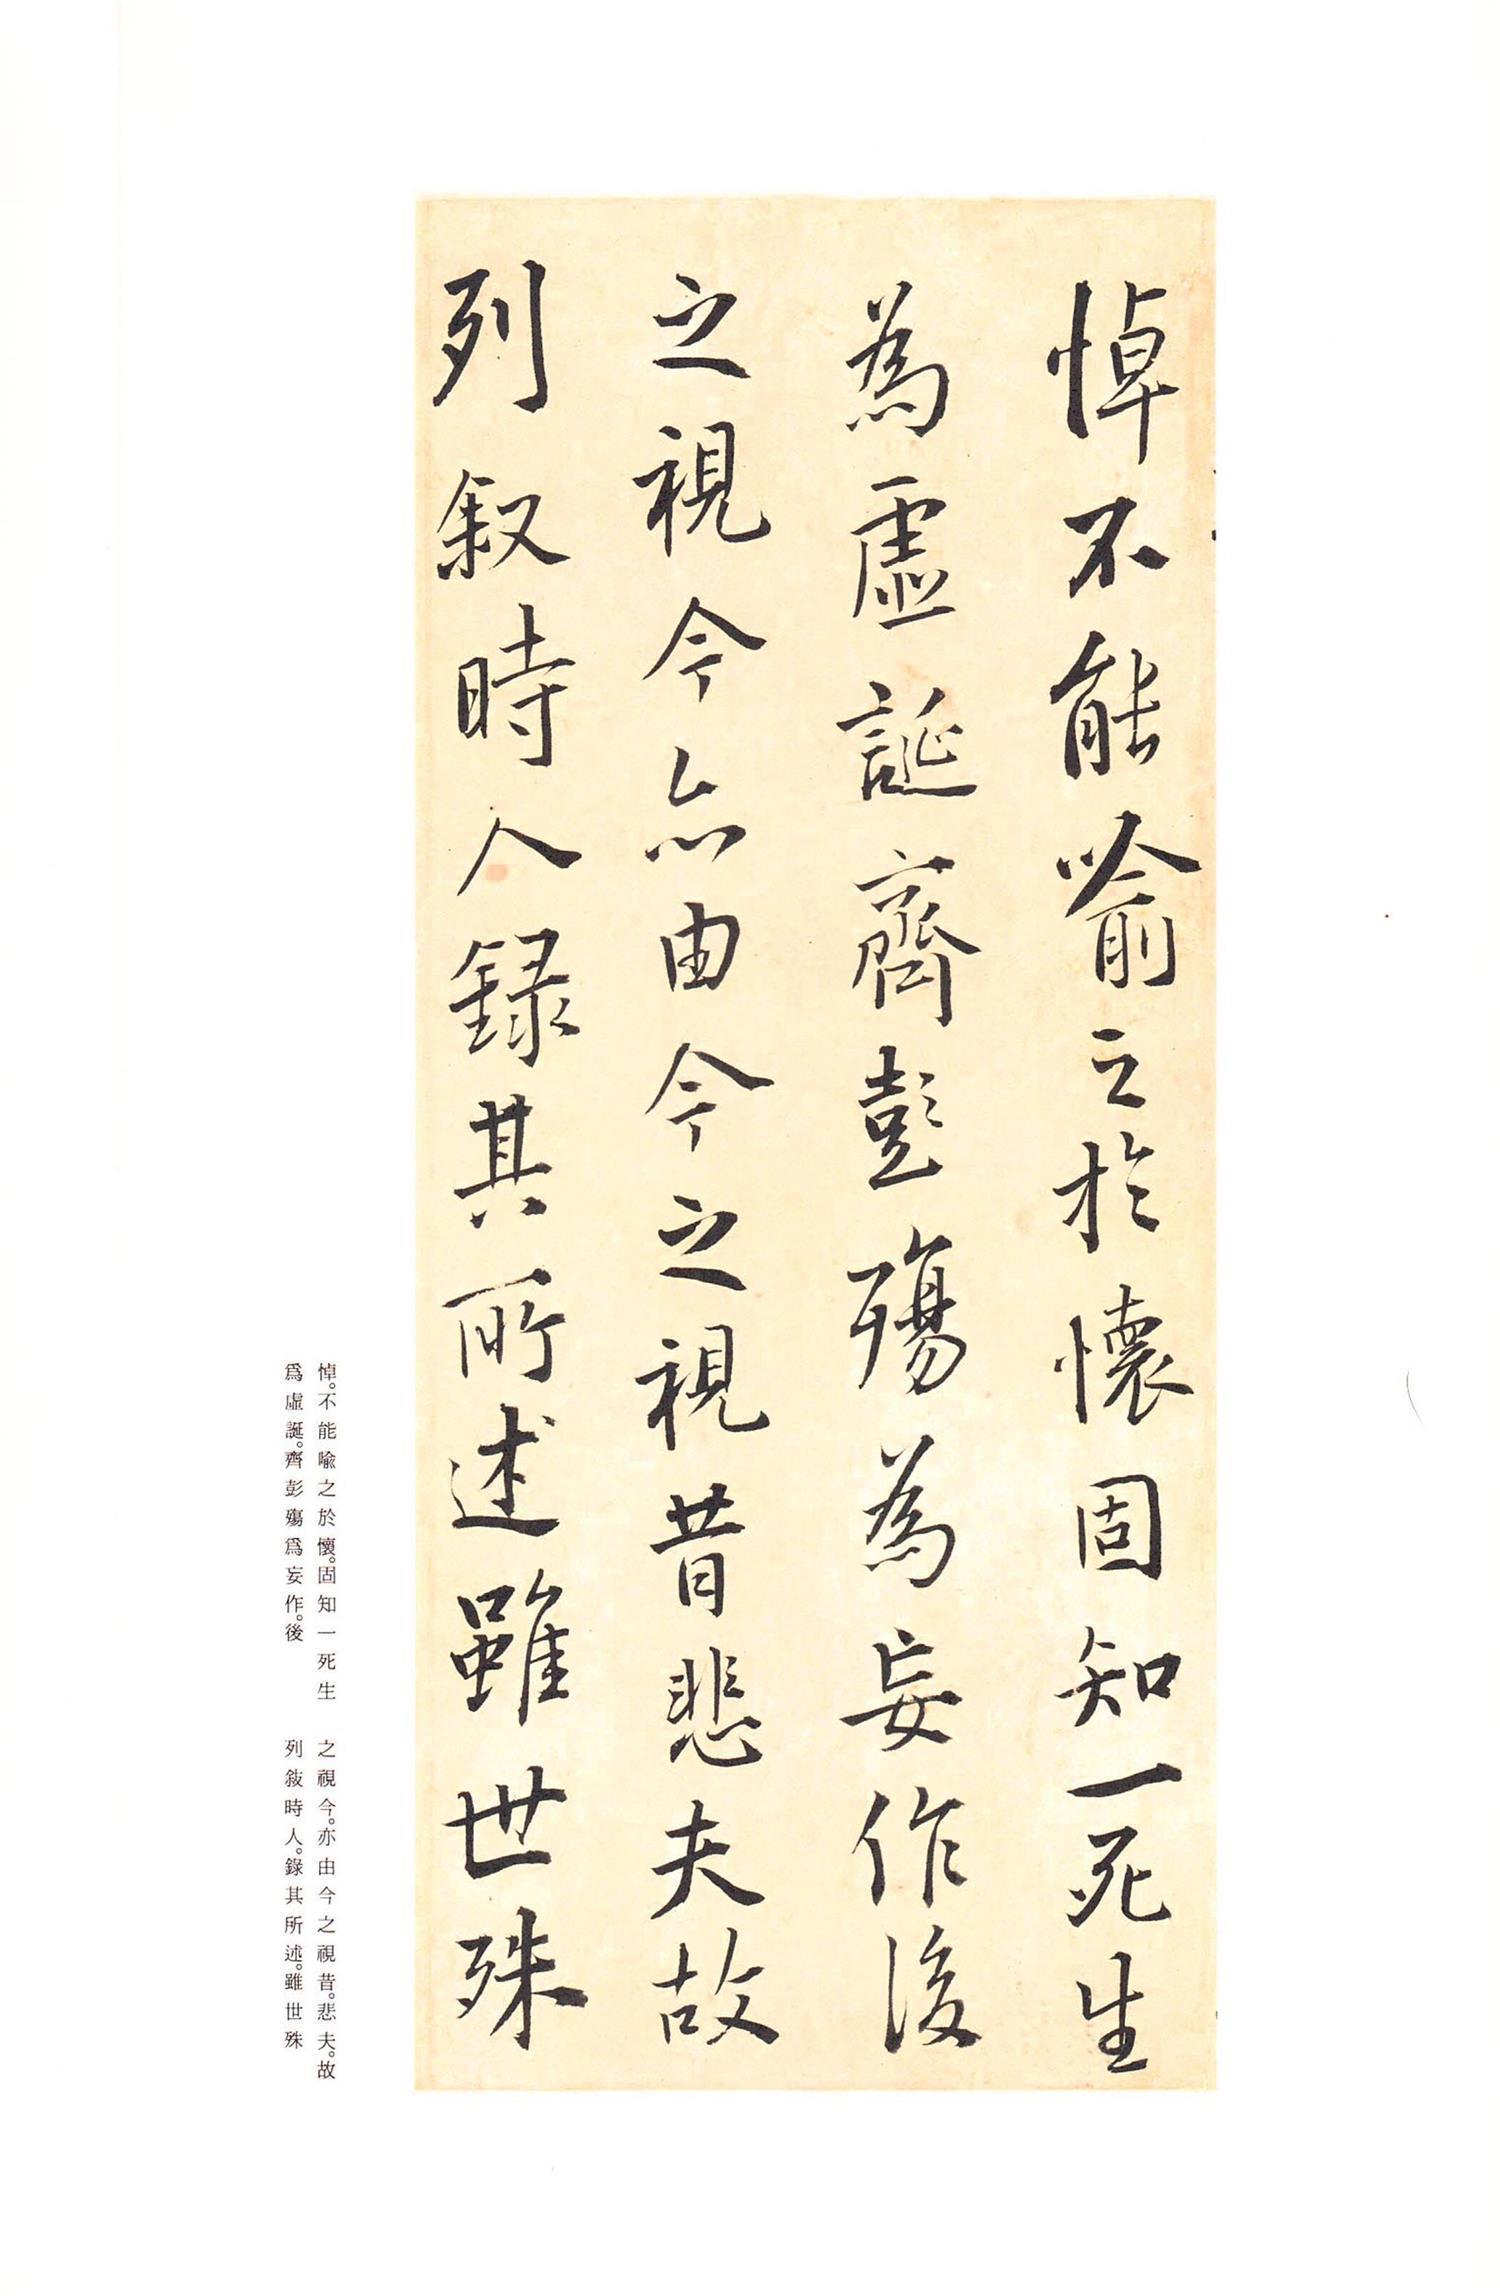 悼不能喻之於懷固知一死生
為虛誕齊彭殤為妄作後
之視今亦由今之視昔悲夫故
列敘時人錄其所述雖世殊
悼。不能喻之於懷。固知一死生
爲虛誕。齊彭殤爲妄作。後
之視今。亦由今之視昔。悲夫。故
列敍時人。錄其所述。雖世殊